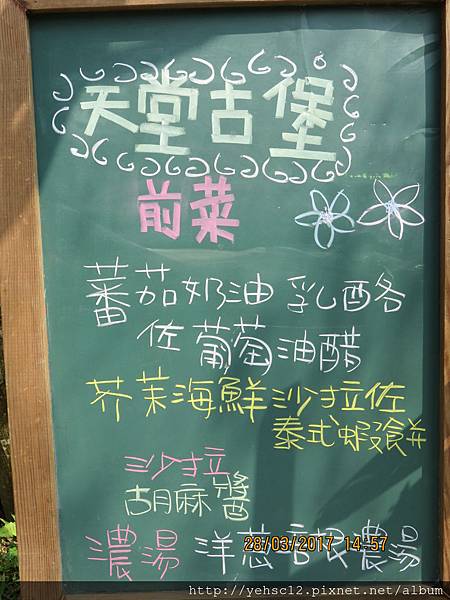 天堂古堡
前菜
蕃茄奶油 乳酪
佐葡萄油醋
芥茉海鮮沙拉佐
泰式蝦餅
沙拉
胡麻醬
濃湯 洋蔥 濃湯
28/03/2017 14:57
http://yehsc12.pixnet.net/album